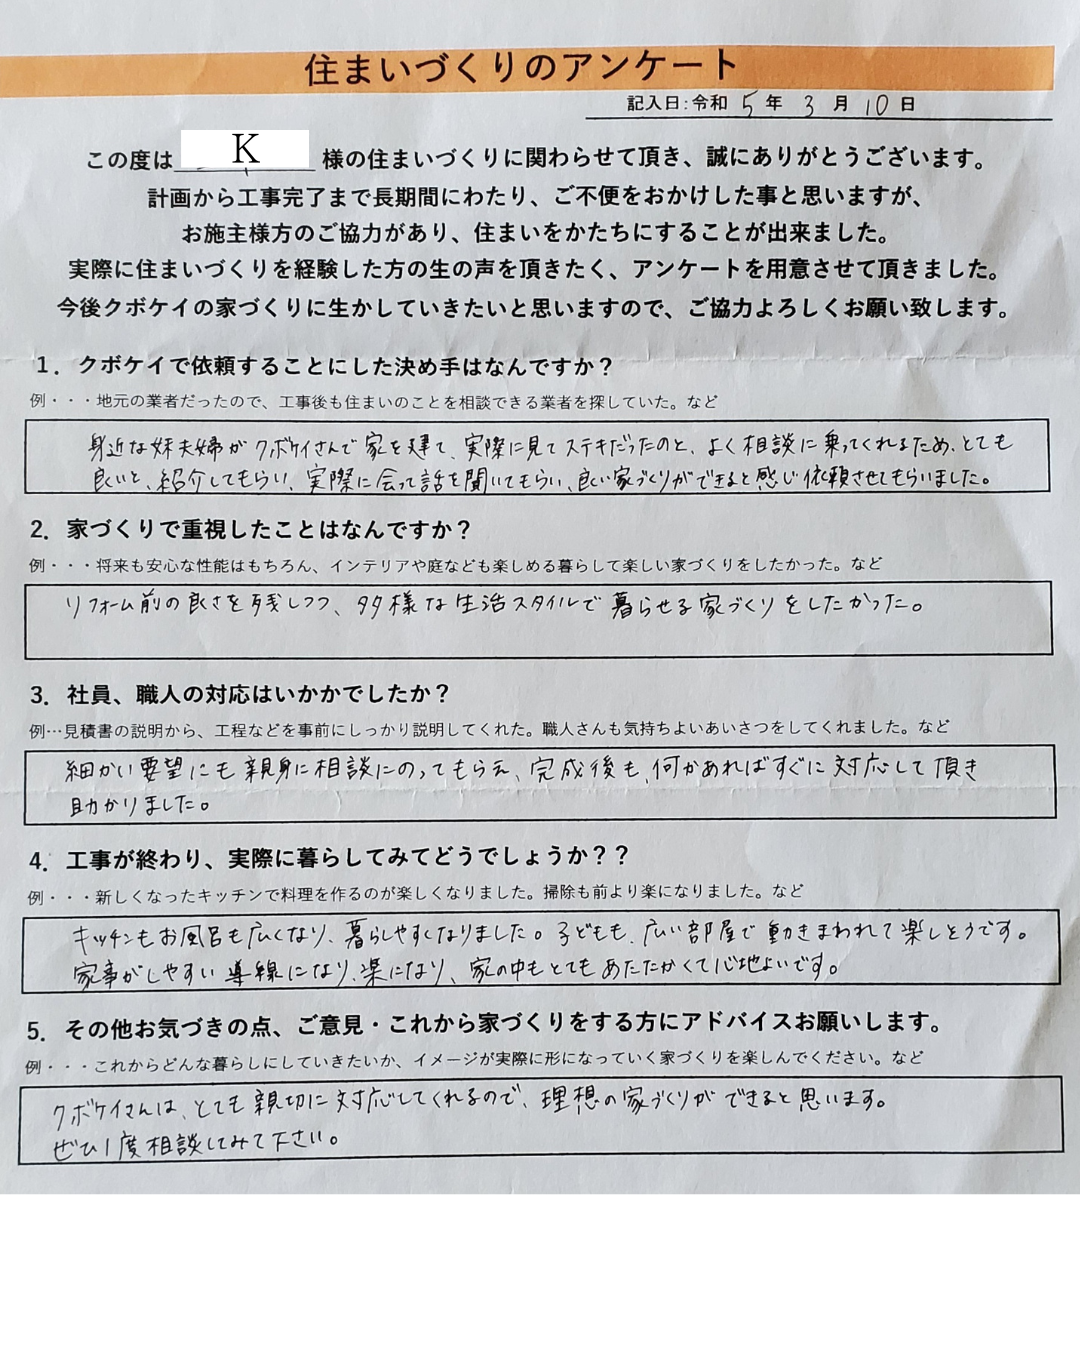 住まいづくりのアンケート
記入日:令和 5 年 3 月 10 日
この度は K 様の住まいづくりに関わらせて頂き、誠にありがとうございます。
計画から工事完了まで長期間にわたり、ご不便をおかけした事と思いますが、
お施主様方のご協力があり、住まいをかたちにすることが出来ました。
実際に住まいづくりを経験した方の生の声を頂きたく、アンケートを用意させて頂きました。
今後クボケイの家づくりに生かしていきたいと思いますので、ご協力よろしくお願い致します。
1．クボケイで依頼することにした決め手はなんですか？
例・・・地元の業者だったので、工事後も住まいのことを相談できる業者を探していた。など
身近な妹夫婦がクボケイさんで家を建て、実際に見てステキだったのと、よく相談に乗ってくれるため、とても
良いと、紹介してもらい、実際に会って話を聞いてもらい、良い家づくりができると感じ依頼させてもらいました。
2．家づくりで重視したことはなんですか？
例・・・将来も安心な性能はもちろん、インテリアや庭なども楽しめる暮らして楽しい家づくりをしたかった。など
リフォーム前の良さを残しつつ、多様な生活スタイルで暮らせる家づくりをしたかった。
3．社員、職人の対応はいかかでしたか？
例…見積書の説明から、工程などを事前にしっかり説明してくれた。職人さんも気持ちよいあいさつをしてくれました。など
細かい要望にも親身に相談にのってもらえ、完成後も、何かあればすぐに対応して頂き
助かりました。
4．工事が終わり、実際に暮らしてみてどうでしょうか？？
例・・・新しくなったキッチンで料理を作るのが楽しくなりました。掃除も前より楽になりました。など
キッチンもお風呂も広くなり、暮らしやすくなりました。子どもも、広い部屋で動きまわれて楽しそうです。
家事がしやすい導線になり、楽になり、家の中もとてもあたたかくて心地よいです。
5．その他お気づきの点、ご意見・これから家づくりをする方にアドバイスお願いします。
例・・・これからどんな暮らしにしていきたいか、イメージが実際に形になっていく家づくりを楽しんでください。など
クボケイさんは、とても親切に対応してくれるので、理想の家づくりができると思います。
ぜひ1度相談してみて下さい。